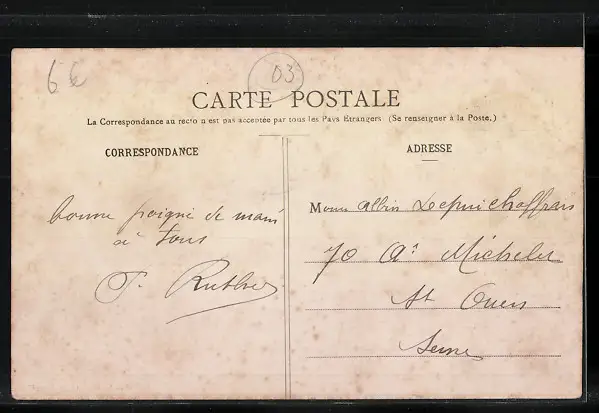 6€
03
CARTE POSTALE
La Correspondance au recto n'est pas acceptée par tous les Pays Etrangers (Se renseigner à la Poste.)
CORRESPONDANCE
ADRESSE
bonne poigné de main
à tous
M Albin
70 Michelet
St Ouen
Seine